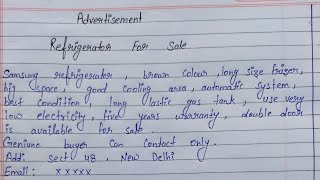 Advertisement
Refrigerator For Sale
Samsung refrigerator , brown colour , long size frizer,
big space , good cooling area , automatic system ,
best condition , long lastic gas tank , use very
low electricity , five years warranty , double door
is available for sale .
Geniune buyer Can Contact only .
Add: sect 48 , New Delhi
Email: xxxxx